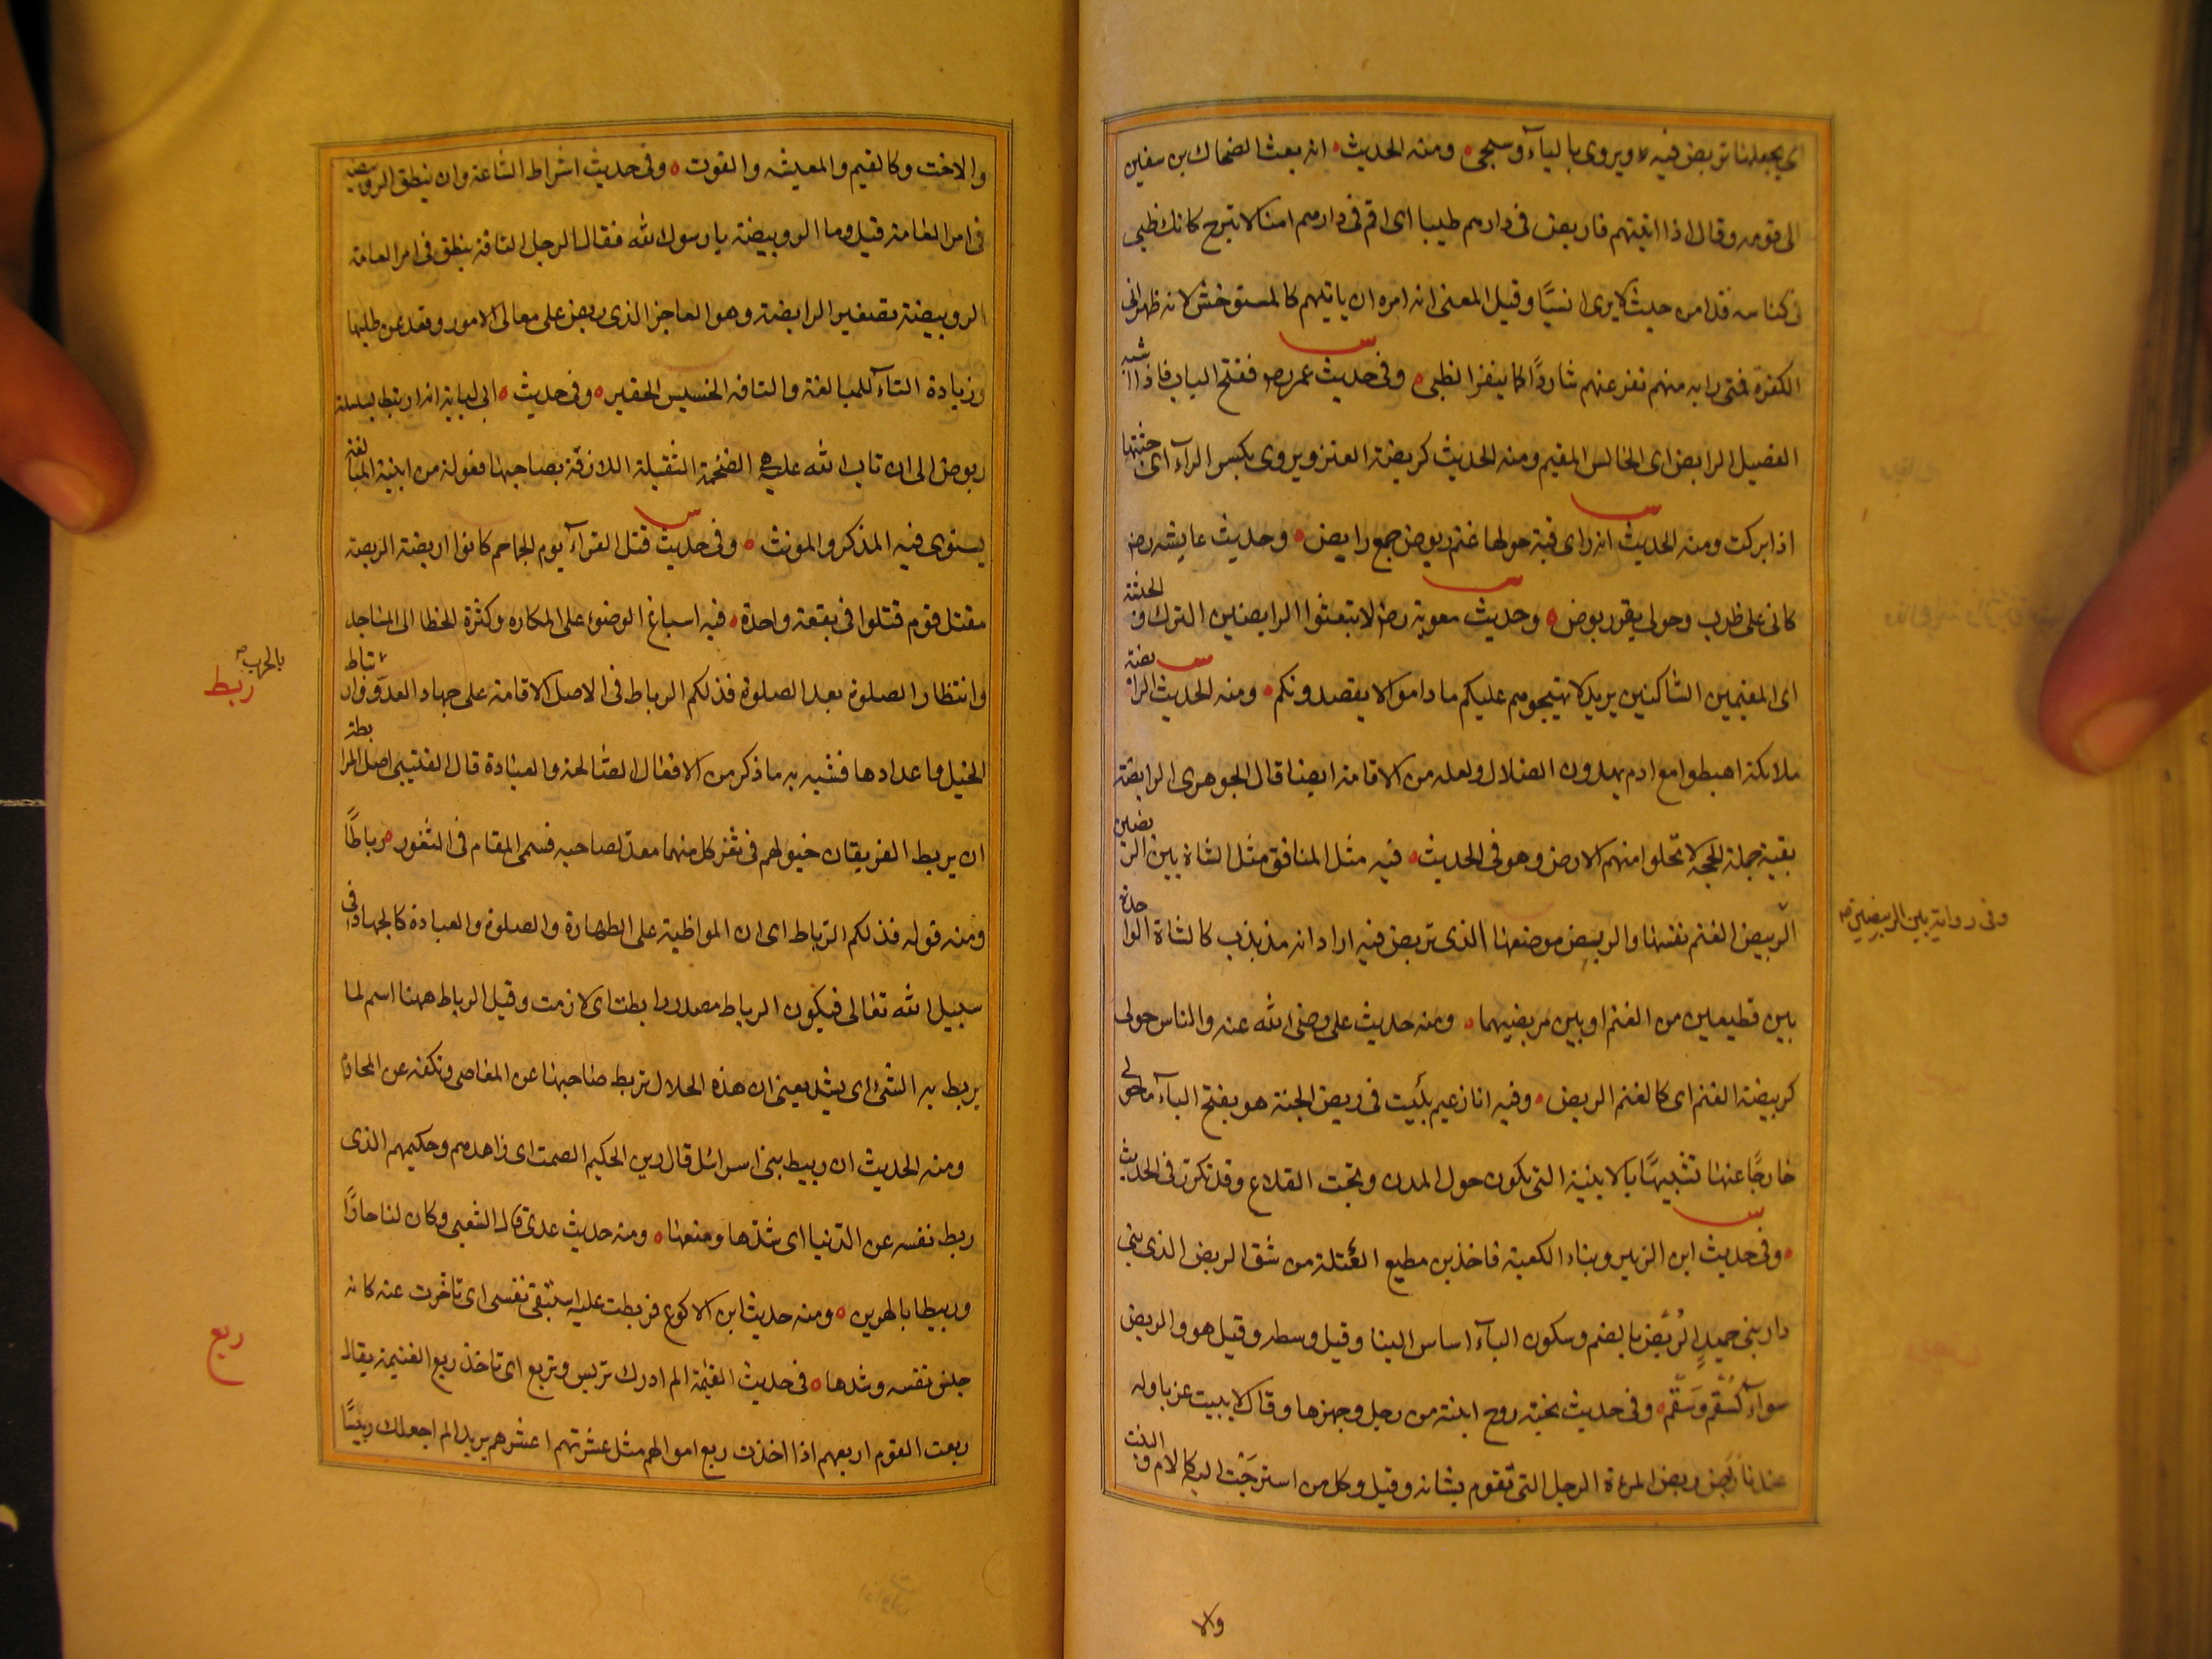 اى يجعلنا تربض فيه ويروى بالياء وسيجى ومنه الحديث انه بعث الضحاك بن سفين
الى قومه وقال اذا اتيتهم فاربض فى دارهم ظبيا اى اقم فى دارهم امنا لا تبرح كانك ظبى
فى كناسه قد امن حيث لا يرى انسيا وقيل المعنى انه امره ان ياتيهم كالمستوحش لانه ظهرانى
الكفرة فمتى رابه منهم نفر عنهم شاردا كما ينفر الظبى وفى حديث عمر رض ففتح الباب فاذا شبه
الفصيل الرابض اى الجالس المقيم ومنه الحديث كربضة العنز ويروى بكسر الراء اى جثتها
اذا بركت ومنه الحديث انه راى قبة حولها غنم ربوض جمع رابض وحديث عايشه رض
كانى على ظرب وحولى بقر ربوض وحديث معوية رض لا تبعثوا الرابضين الترك و الحبشة
اى المقيمين الساكنين يريد لا تهيجوهم عليكم ما داموا لا يقصدونكم ومنه الحديث الرابضة
ملائكة اهبطوا مع ادم يهدون الضلال ولعله من الاقامة ايضا قال الجوهرى الرابضة
بقية حملة الحجة لا تخلوا منهم الارض وهو فى الحديث فيه مثل المنافق مثل الشاة بين الربضين
وفى رواية بين الربيضين
الربيض الغنم نفسها والربض موضعها الذى تربض فيه اراد انه مذبذب كالشاة الواحدة
بين قطيعين من الغنم او بين مربضيهما ومنه حديث على رضى الله عنه والناس حولى
كربيضة الغنم اى كالغنم الربض وفيه انا زعيم ببيت فى ربض الجنة هو بفتح الباء ما حولى
خارجا عنها تشبيها بالابنية التى يكون حول المدن وتحت القلاع وقد تكرر فى الحديث
وفى حديث ابن الزبير وبناء الكعبة فاخذ بن مطيع العتلة من شق الربض الذى بنى
دار بنى حميد الربض بالضم وسكون الباء اساس البنا وقيل وسطه وقيل هو والربض
سواء كسقم وسقم وفى حديث نجبة زوج ابنته من رجل وجهزها وقال لا يبيت عزبا وله
عندنا ربض ربض المرءة الرجل التى تقوم بشانه وقيل وكل من استرحت اليه كالام و البنت
والا
والاخت وكالقيم والمعيشه والقوت وفى حديث اشراط الساعة وان ينطق الرويبضة
فى امر العامة قيل وما الرويبضة يا رسول الله فقال الرجل التافة ينطق فى امر العامة
الرويبضة تصغير الرابضة وهو العاجز الذى ربض على معالى الامور وقعد عن طلبها
وزيادة التاء للمبالغة والتافه الخسيس الحقير وفى حديث ابى لبابة انه ارتبط بسلسلة
ربوض الى ان تاب الله عليه هى الضخمة الثقيلة اللازقة بصاحبها فعولة من ابنية المبالغة
يستوى فيه المذكر والمونث وفى حديث قتل القراء يوم الجماجم كانوا اربضة الربضة
مقتل قوم قتلوا فى بقعة واحدة فيه اسباغ الوضوء على المكاره وكثرة الخطا الى المساجد
بالحرب
ربط
وانتظار الصلوة بعد الصلوة فذلكم الرباط فى الاصل الاقامة على جهاد العدو وارتباط
الخيل واعدادها فشبه به ما ذكر من الافعال الصالحة والعبادة قال القتيبى اصل المرابطة
ان يربط الفريقان خيولهم فى ثغر كل منهما معد لصاحبه فسمى المقام فى الثغور رباطا
ومنه قوله فذلكم الرباط اى ان المواظبة على الطهارة والصلوة والعبادة كالجهاد فى
سبيل الله تعالى فيكون الرباط مصدر رابطت اى لازمت وقيل الرباط ههنا اسم لما
يربط به الشئ اى يشد يعنى ان هذه الخلال تربط صاحبها عن المعاصى وتكفه عن المحارم
ومنه الحديث ان ربيط بنى اسرائل قال زين الحكيم الصمت اى زاهدهم وحكيمهم الذى
ربط نفسه عن الدنيا اى شدها ومنعها ومنه حديث عدى قال الشعبى وكان لنا جارا
وربيطا بالنهرين ومنه حديث ابن الاكوع فربطت عليه استبقى نفسى اى تاخرت عنه كانه
ربع
حبس نفسه وشدها فى حديث القيمة الم ادرك تربس وتربع اى تاخذ ربع الغنيمة يقال
ربعت القوم اربعهم اذا اخذت ربع اموالهم مثل عشرتهم اعشرهم يريد الم اجعلك رييسا